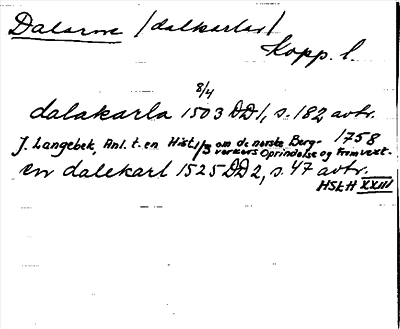 Dalarne /dalkarlar/
Kopp. l.
8/4
dalakarla 1503 DD1, s. 182 avtr.
J. Langebek, Anl. t. en Hist. om de norske Berg- 1758
verkers Oprindelse og Fremvext.
1/3
en dalekarl 1525 DD2, s. 47 avtr.
HSkH XXIII